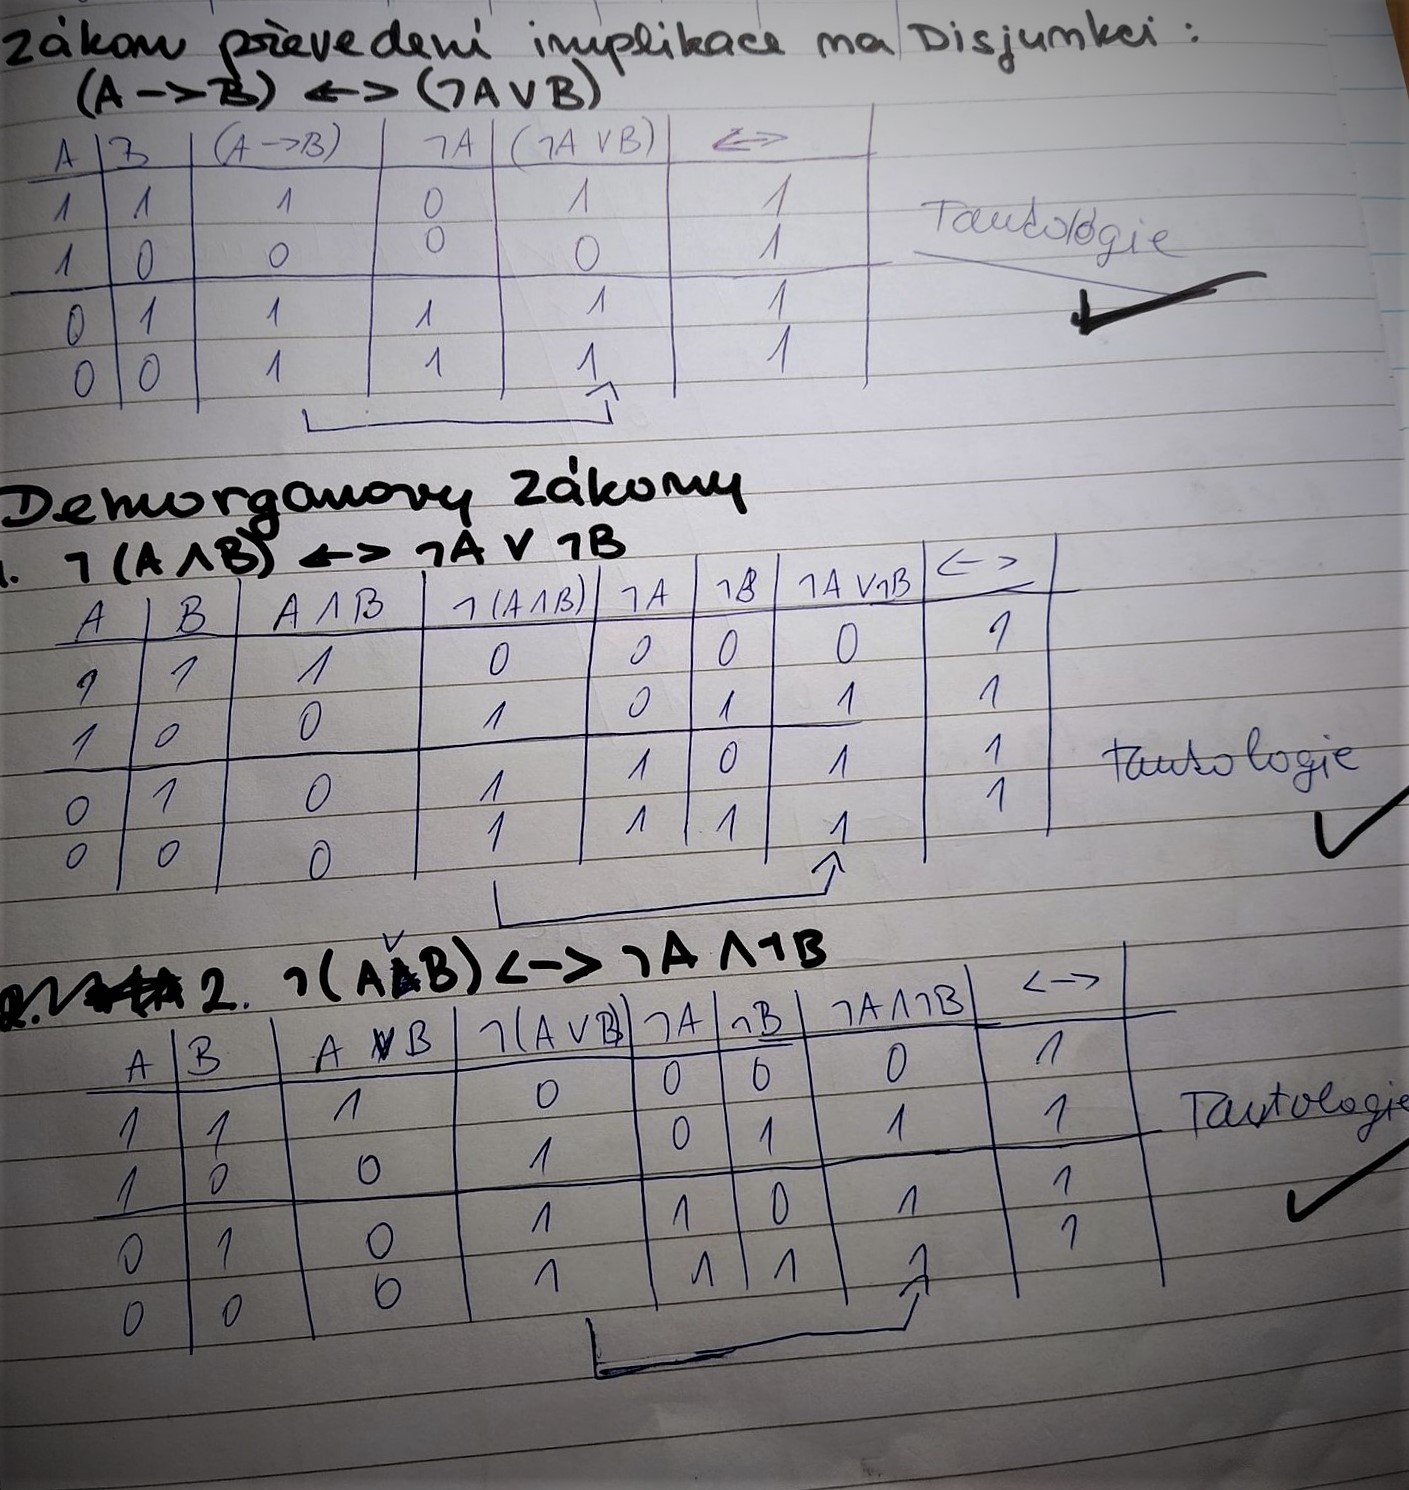 zákon převedení implikace na Disjunkci:
(A -> B) <-> (¬A ∨ B)
A B (A->B) ¬A (¬A ∨ B) <->
1 1 1 0 1 1
1 0 0 0 0 1
0 1 1 1 1 1
0 0 1 1 1 1
Tautologie
Demorganovy zákony
1. ¬(A ∧ B) <-> ¬A ∨ ¬B
A B A ∧ B ¬(A ∧ B) ¬A ¬B ¬A ∨ ¬B <->
1 1 1 0 0 0 0 1
1 0 0 1 0 1 1 1
0 1 0 1 1 0 1 1
0 0 0 1 1 1 1 1
tautologie
2. ¬(A ∨ B) <-> ¬A ∧ ¬B
A B A ∨ B ¬(A ∨ B) ¬A ¬B ¬A ∧ ¬B <->
1 1 1 0 0 0 0 1
1 0 0 1 0 1 1 1
0 1 0 1 1 0 1 1
0 0 0 1 1 1 1 1
Tautologie